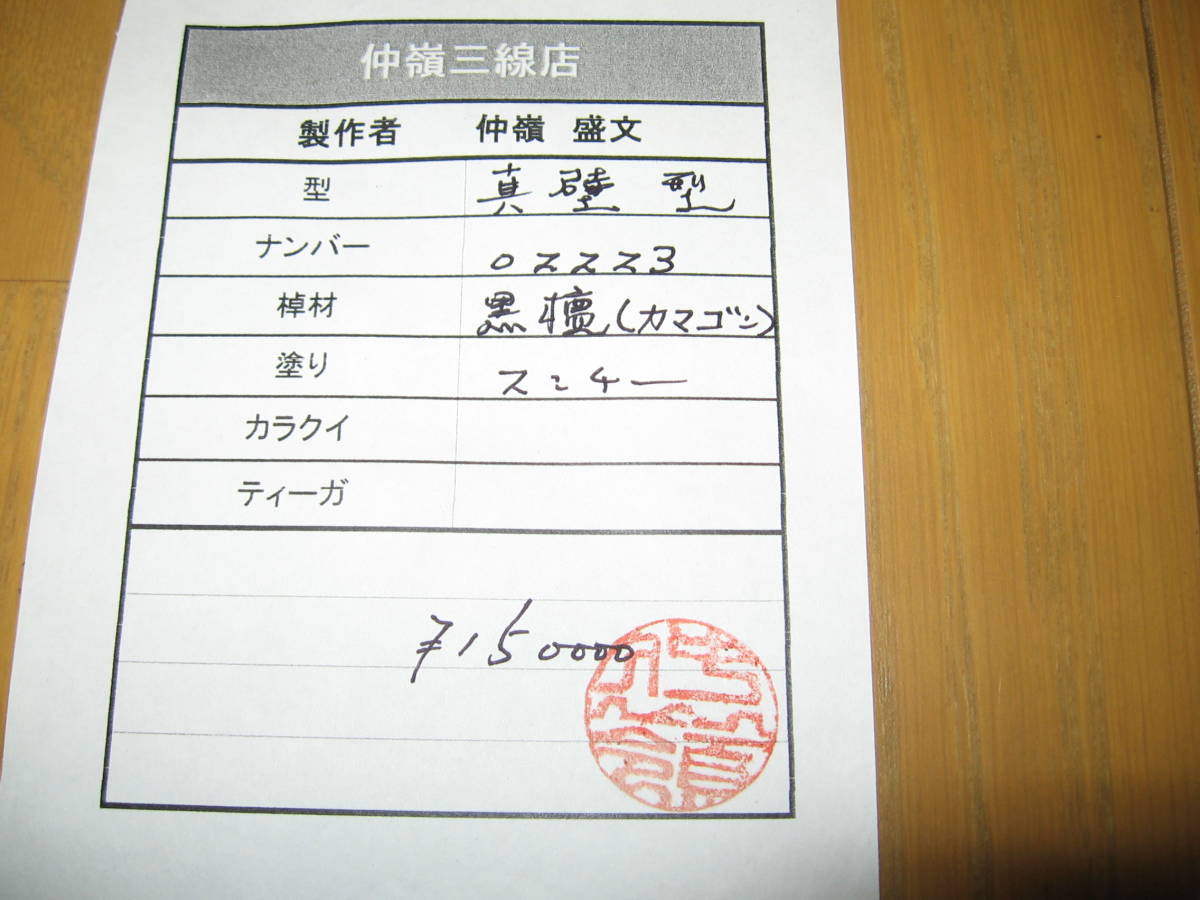 仲嶺三線店
製作者 仲嶺 盛文
型 真壁型
ナンバー 02223
棹材 黒檀(カマゴン)
塗り スンチー
カラクイ
ティーガ
¥150000
仲嶺